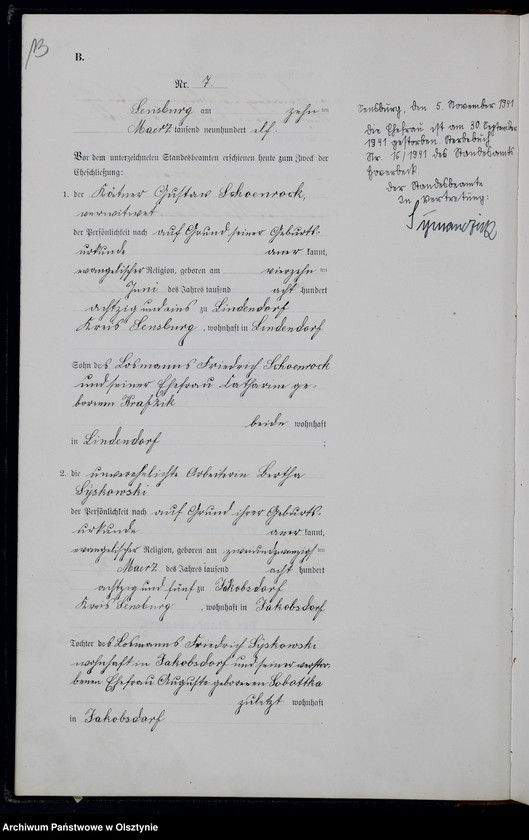 B.
Nr. 7
Sensburg am zehn ten
Maerz tausend neunhundert elf
Vor dem unterzeichneten Standesbeamten erschienen heute zum Zweck der
Eheschließung:
1. der Kätner Gustav Schoenrock,
verwitwet
der Persönlichkeit nach auf Grund seiner Geburts-
urkunde aner kannt,
evangelischer Religion, geboren am vierzehn ten
Juni des Jahres tausend acht hundert
achtzig und eins zu Lindendorf
Kreis Sensburg, wohnhaft in Lindendorf
Sohn des Losmanns Friedrich Schoenrock
und seiner Ehefrau Catharine ge-
borenen
beide wohnhaft
in Lindendorf ;
2. die unverehelichte Arbeiterin Bertha
Syskowski
der Persönlichkeit nach auf Grund ihrer Geburts-
urkunde aner kannt,
evangelischer Religion, geboren am zweiundzwanzigsten
Maerz des Jahres tausend acht hundert
achtzig und fünf zu Jakobsdorf
Kreis Sensburg, wohnhaft in Jakobsdorf
Tochter des Losmanns Friedrich Syskowski
wohnhaft in Jakobsdorf und seiner verstor-
benen Ehefrau Auguste geborenen Sobottka
zuletzt wohnhaft
in Jakobsdorf
Sensburg, den 5. November 1941
Die Ehefrau ist am 30. September
1941 gestorben. Sterbebuch
Nr. 16/1941 des Standesamts
Hoverbeck
Der Standesbeamte
In Vertretung:
Archiwum Państwowe w Olsztynie